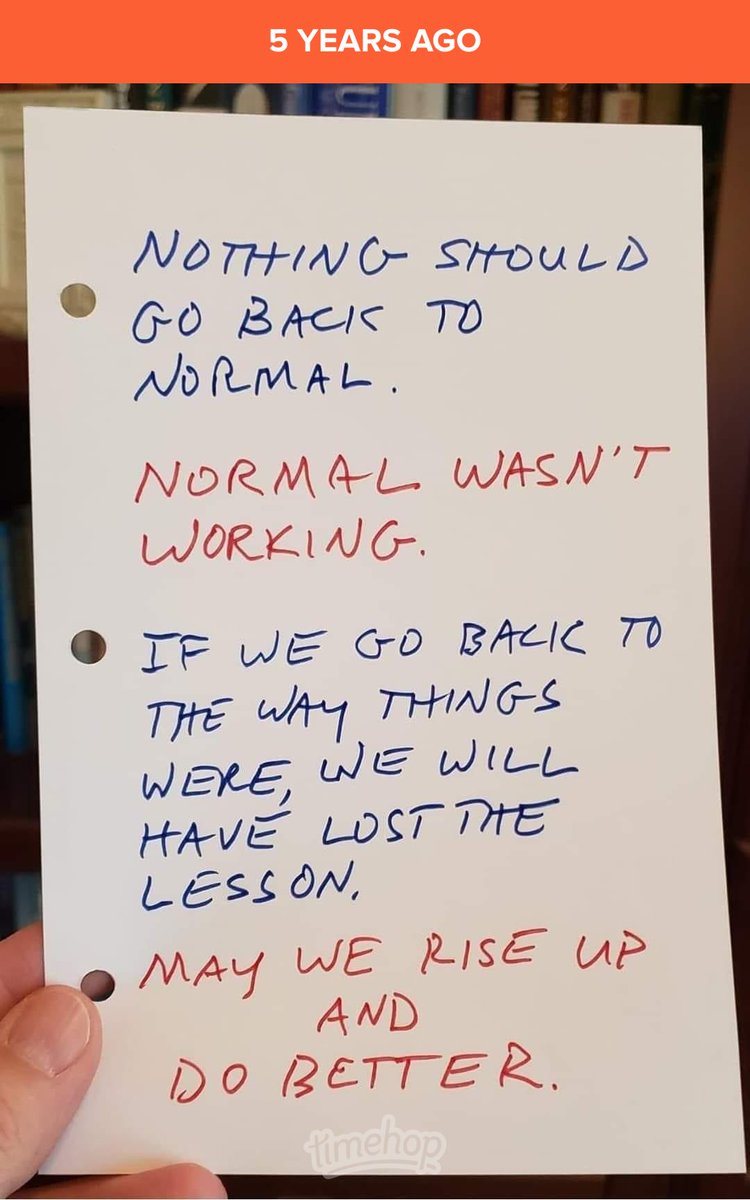 5 YEARS AGO
NOTHING SHOULD
GO BACK TO
NORMAL.
NORMAL WASN'T
WORKING.
IF WE GO BACK TO
THE WAY THINGS
WERE, WE WILL
HAVE LOST THE
LESSON.
MAY WE RISE UP
AND
DO BETTER.
timehop